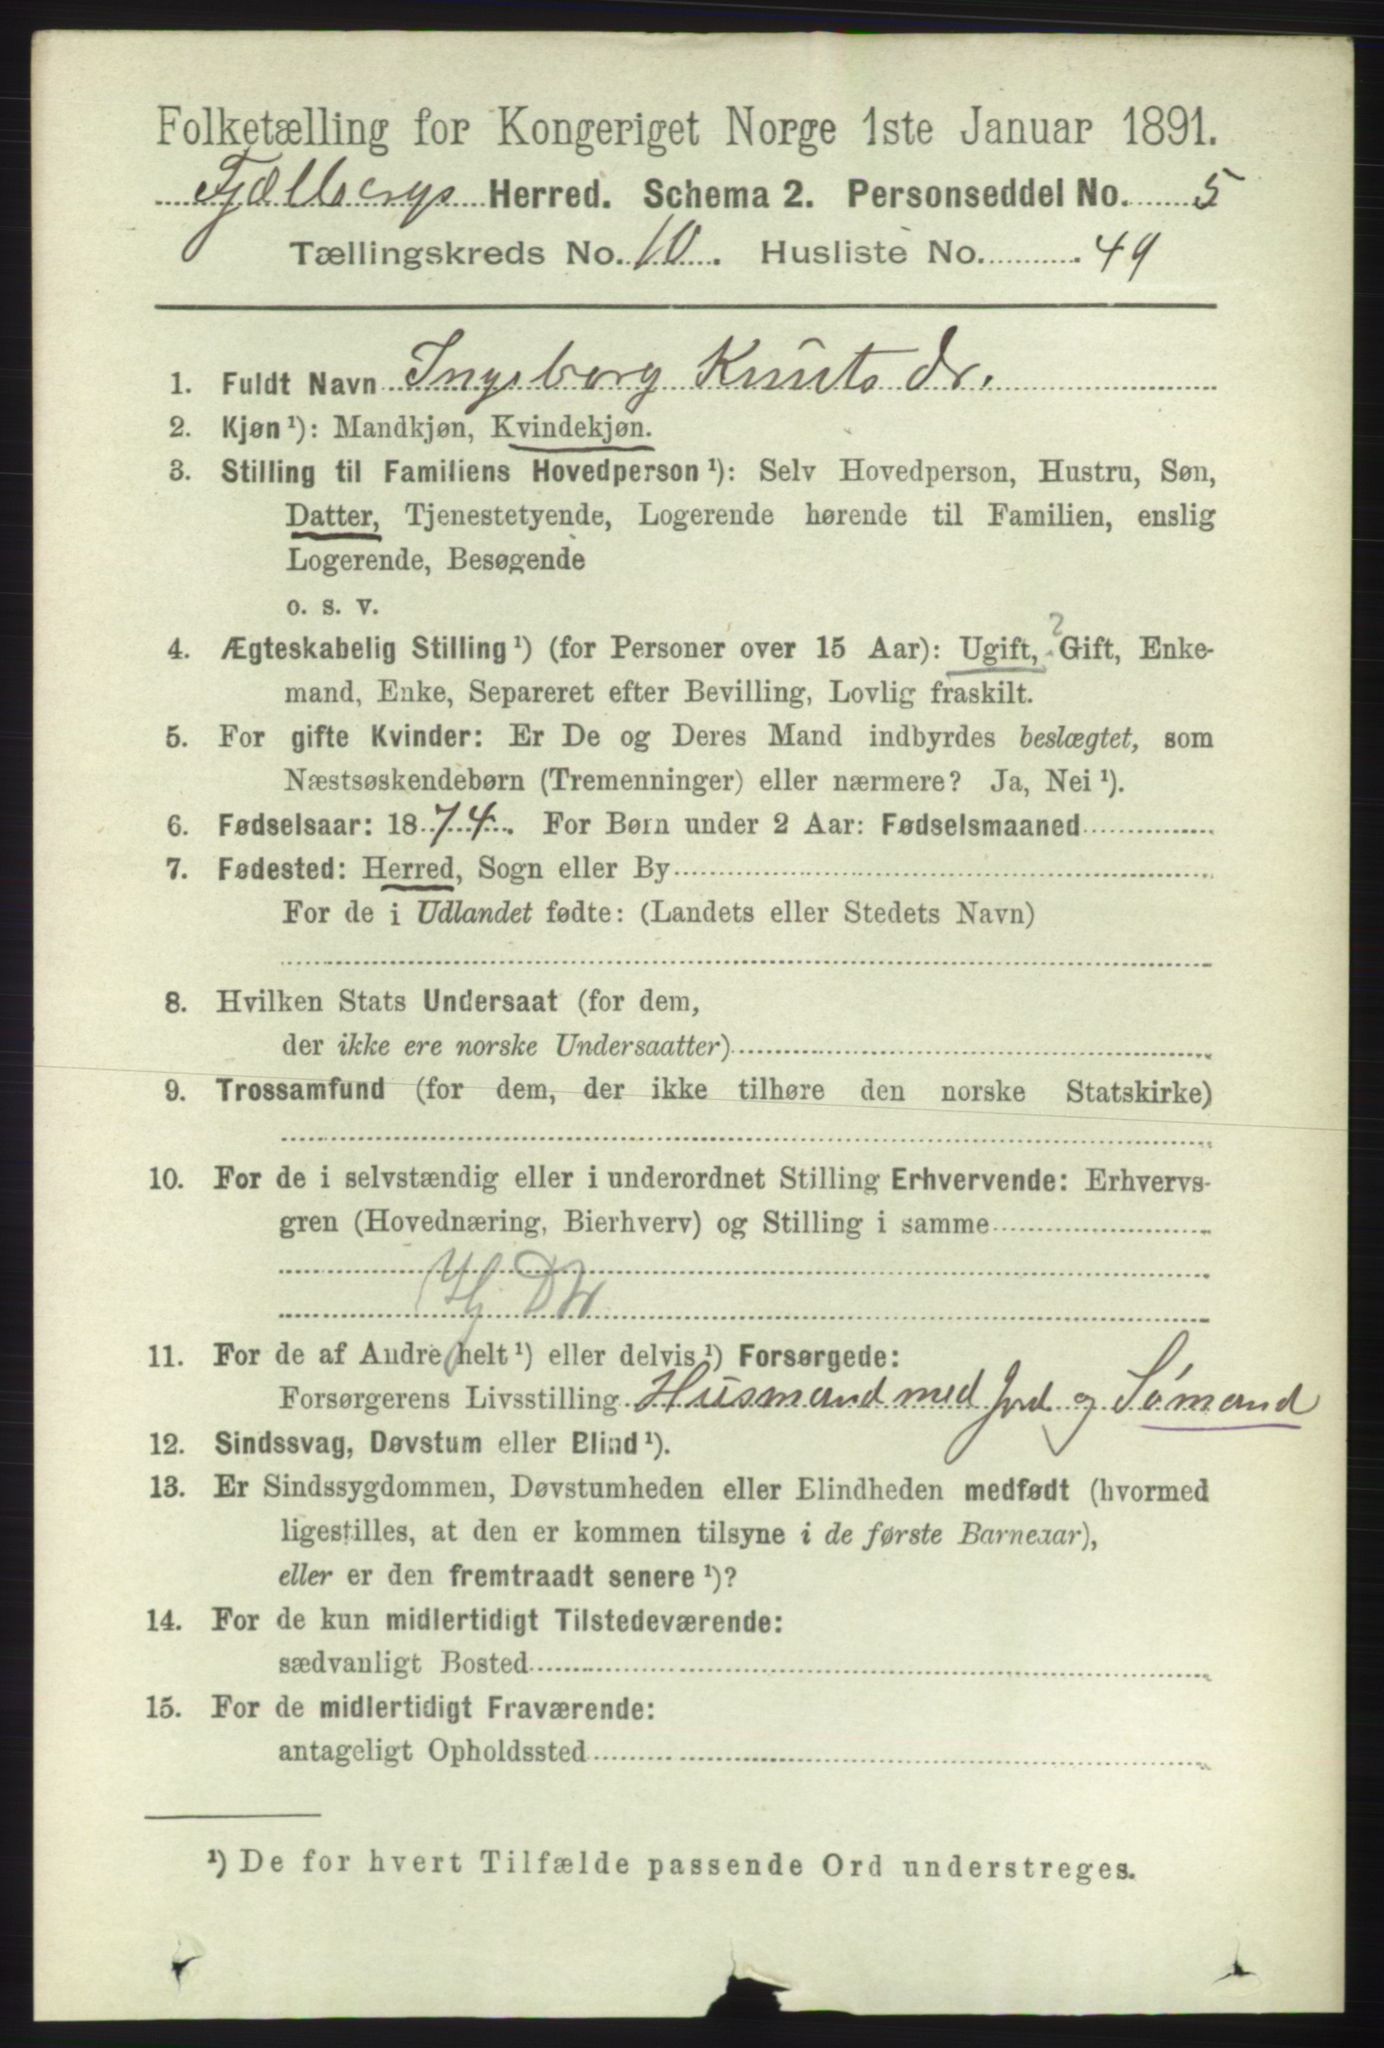 Folketælling for Kongeriget Norge 1ste Januar 1891.
Fjælbergs Herred. Schema 2. Personseddel No. 5
Tællingskreds No. 10. Husliste No. 49
1. Fuldt Navn Ingeborg Knuts dr.
2. Kjøn ¹): Mandkjøn, Kvindekjøn.
3. Stilling til Familiens Hovedperson ¹): Selv Hovedperson, Hustru, Søn,
Datter, Tjenestetyende, Logerende hørende til Familien, enslig
Logerende, Besøgende
o. s. v.
4. Ægteskabelig Stilling ¹) (for Personer over 15 Aar): Ugift, ? Gift, Enke-
mand, Enke, Separeret efter Bevilling, Lovlig fraskilt.
5. For gifte Kvinder: Er De og Deres Mand indbyrdes beslægtet, som
Næstsøskendebørn (Tremenninger) eller nærmere? Ja, Nei ¹).
6. Fødselsaar: 1874. For Børn under 2 Aar: Fødselsmaaned
7. Fødested: Herred, Sogn eller By
For de i Udlandet fødte: (Landets eller Stedets Navn)
8. Hvilken Stats Undersaat (for dem,
der ikke ere norske Undersaatter)
9. Trossamfund (for dem, der ikke tilhøre den norske Statskirke)
10. For de i selvstændig eller i underordnet Stilling Erhvervende: Erhvervs-
gren (Hovednæring, Bierhverv) og Stilling i samme
11. For de af Andre helt ¹) eller delvis ¹) Forsørgede:
Forsørgerens Livsstilling Husmand med Jord og Sømand
12. Sindssvag, Døvstum eller Blind ¹).
13. Er Sindssygdommen, Døvstumheden eller Blindheden medfødt (hvormed
ligestilles, at den er kommen tilsyne i de første Barneaar),
eller er den fremtraadt senere ¹)?
14. For de kun midlertidigt Tilstedeværende:
sædvanligt Bosted
15. For de midlertidigt Fraværende:
antageligt Opholdssted
¹) De for hvert Tilfælde passende Ord understreges.